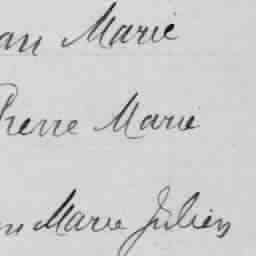 an Marie
Pierre Marie
n Marie Julien